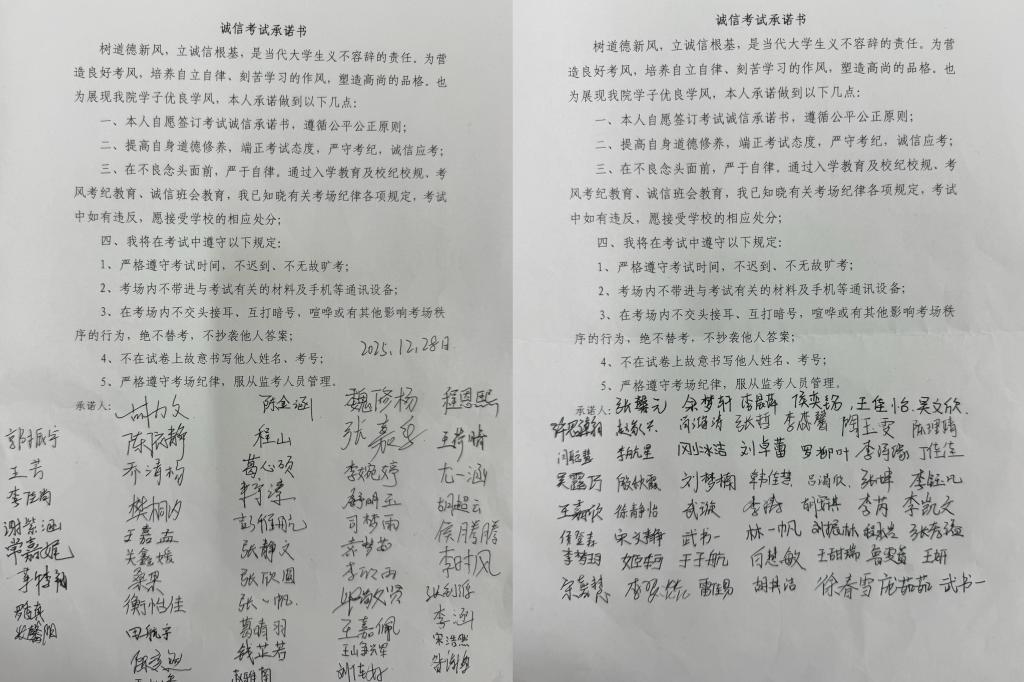 诚信考试承诺书
树道德新风，立诚信根基，是当代大学生义不容辞的责任。为营
造良好考风，培养自立自律、刻苦学习的作风，塑造高尚的品格。也
为展现我院学子优良学风，本人承诺做到以下几点：
一、本人自愿签订考试诚信承诺书，遵循公平公正原则；
二、提高自身道德修养，端正考试态度，严守考纪，诚信应考；
三、在不良念头面前，严于自律。通过入学教育及校纪校规、考
风考纪教育、诚信班会教育，我已知晓有关考场纪律各项规定，考试
中如有违反，愿接受学校的相应处分；
四、我将在考试中遵守以下规定：
1、严格遵守考试时间，不迟到、不无故旷考；
2、考场内不带进与考试有关的材料及手机等通讯设备；
3、在考场内不交头接耳、互打暗号，喧哗或有其他影响考场秩
序的行为，绝不替考，不抄袭他人答案；
2025.12.28日
4、不在试卷上故意书写他人姓名、考号；
5、严格遵守考场纪律，服从监考人员管理。
承诺人： 陈金涵 魏修杨 程恩熙
郭振宇 陈依静 程山 张嘉乐 王荷晴
王芳 乔清格 葛心硕 李婉婷 尤一涵
樊桐汐 胡超云
谢紫涵 王嘉 司梦雨 侯腾腾
常嘉妮 关鑫媛 张静文 李时风
桑果 张欣圆 李欣雨
衡怡佳 张一帆 李涵
田航宇 葛晴羽 王嘉佩 宋浩然
钱芷若
刘佳好
诚信考试承诺书
树道德新风，立诚信根基，是当代大学生义不容辞的责任。为营
造良好考风，培养自立自律、刻苦学习的作风，塑造高尚的品格。也
为展现我院学子优良学风，本人承诺做到以下几点：
一、本人自愿签订考试诚信承诺书，遵循公平公正原则；
二、提高自身道德修养，端正考试态度，严守考纪，诚信应考；
三、在不良念头面前，严于自律。通过入学教育及校纪校规、考
风考纪教育、诚信班会教育，我已知晓有关考场纪律各项规定，考试
中如有违反，愿接受学校的相应处分；
四、我将在考试中遵守以下规定：
1、严格遵守考试时间，不迟到、不无故旷考；
2、考场内不带进与考试有关的材料及手机等通讯设备；
3、在考场内不交头接耳、互打暗号，喧哗或有其他影响考场秩
序的行为，绝不替考，不抄袭他人答案；
4、不在试卷上故意书写他人姓名、考号；
5、严格遵守考场纪律，服从监考人员管理。
承诺人： 张馨元 余梦轩 李晨萍 侯奕扬 王佳怡 吴文欣
张哲 李彦馨 陶玉雯 陈理晴
闫聪慧 刘卓蕾 罗柳叶 李涵瑜 丁佳佳
吴露巧 殷欣霞 刘梦楠 韩佳慧 吕滴欣 张坤 李钰凡
王嘉欣 徐静怡 武璇 李涛 李芮 李岚文
宋文静 武书一 林一帆 刘振林
李梦玥 姬雨 于子航 白慧敏 王甜瑞 鲁雯萱 王妍
宋慧 崔锡 胡其洁 徐春雪 庞茹茹 武书一